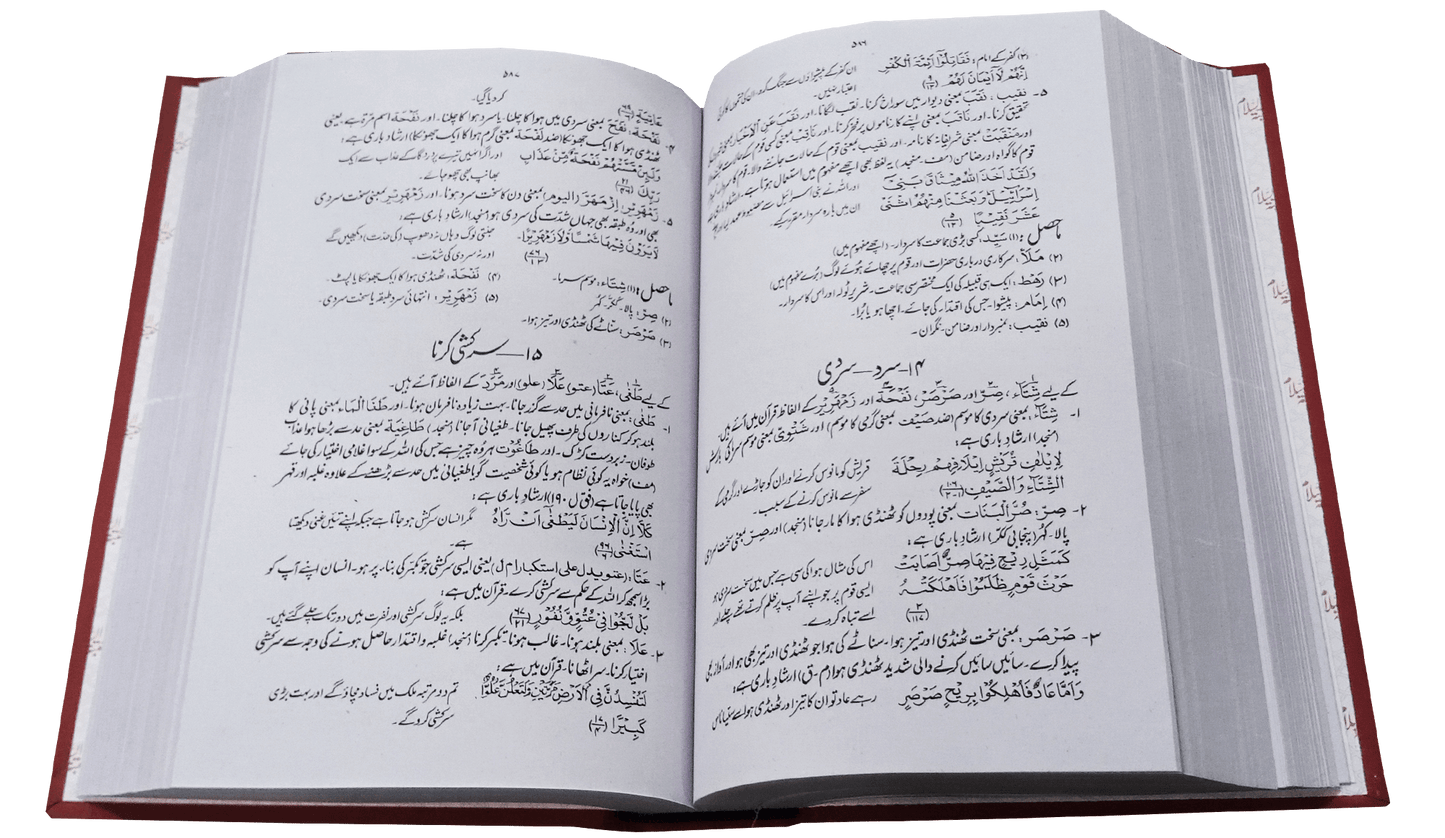 ۵۷۶
(۳) کفر کے امام : فَقَاتِلُوْٓا اَئِمَّةَ الْكُفْرِ ان کفر کے پیشواؤں سے جنگ کرو
اِنَّهُمْ لَآ اَيْمَانَ لَهُمْ (۹/۱۲) اعتبار نہیں۔
۵۔ نقیب : نَقَبَ بمعنی دیوار میں سوراخ کرنا۔ نقب لگانا۔ اور نَقَبَ عَنِ الْاَخْبَار بمعنی
تحقیق کرنا۔ اور نَاقَبَ بمعنی اپنے کارناموں پر فخر کرنا۔ اور نَاقَب بمعنی کسی قوم کے حالات
اور مَنْقَبَتْ بمعنی شریفانہ کارنامہ۔ اور نقیب بمعنی قوم کے حالات جاننے والا۔ قوم کا سردار
قوم کا گواہ اور ضامن (مف۔ منجد) یہ لفظ بھی اچھے مفہوم میں استعمال ہوتا ہے۔ ارشاد باری
وَلَقَدْ اَخَذَ اللّٰهُ مِيْثَاقَ بَنِيْٓ اور اللہ نے بنی اسرائیل سے مضبوط عہد لیا اور
اِسْرَآءِيْلَ وَبَعَثْنَا مِنْهُمُ اثْنَيْ ان میں بارہ سردار مقرر کیے۔
عَشَرَ نَقِيْبًا (۵/۱۲)
ماحصل : (۱) سَیِّد، کسی بڑی جماعت کا سردار۔ (اچھے مفہوم میں)
(۲) مَلَأ، سرکاری درباری حضرات اور قوم پر چھائے ہوئے لوگ (بُرے مفہوم میں)
(۳) رَهْط، ایک ہی قبیلہ کی ایک مختصر سی جماعت۔ شریر ٹولہ اور اس کا سردار۔
(۴) اِمَام: پیشوا۔ جس کی اقتدا کی جائے۔ اچھا ہو یا بُرا۔
(۵) نقیب: نمبردار اور ضامن۔ نگران۔
۱۴۔ سرد — سردی
کے لیے شِتَآء، صِرّ اور صَرْصَر، نَفْحَة اور زَمْهَرِيْر کے الفاظ قرآن میں آئے ہیں۔
۱۔ شِتَآء، بمعنی سردی کا موسم (ضد صَيْف بمعنی گرمی کا موسم) اور شَتْوِىّ بمعنی موسم سرما کی بارش
(منجد) ارشاد باری ہے :
لِاِيْلٰفِ قُرَيْشٍ اٖلٰفِهِمْ رِحْلَةَ قریش کو مانوس کرنے اور ان کو جاڑے اور گرمی کے
الشِّتَآءِ وَالصَّيْفِ (۱۰۶/۱-۲) سفر سے مانوس کرنے کے سبب۔
۲۔ صِرّ: صَرَّ النَّبَات بمعنی پودوں کو ٹھنڈی ہوا کا مار جانا (منجد) اور صِرّ بمعنی سخت سردی
پالا۔ کہر (پنجابی ککر) ارشاد باری ہے :
كَمَثَلِ رِيْحٍ فِيْهَا صِرٌّ اَصَابَتْ اس کی مثال ہوا کی سی ہے جس میں سخت سردی ہو
حَرْثَ قَوْمٍ ظَلَمُوْٓا فَاَهْلَكَتْهُ ایسی قوم پر جو اپنے آپ پر ظلم کرتے تھے چلے اور
(۳/۱۱۷) اسے تباہ کر دے۔
۳۔ صَرْصَر، بمعنی سخت ٹھنڈی اور تیز ہوا۔ سناٹے کی ہوا جو ٹھنڈی اور تیز بھی ہو اور آواز بھی
پیدا کرے۔ سائیں سائیں کرنے والی شدید ٹھنڈی ہوا (م۔ ق) ارشاد باری ہے :
وَاَمَّا عَادٌ فَاُهْلِكُوْا بِرِيْحٍ صَرْصَرٍ رہے عاد تو ان کا تیز اور ٹھنڈی ہوا سے
۵۸۷
عَاتِيَةٍ (۶۹/۶) کر دیا گیا۔
۴۔ نَفْحَة: نَفَحَ بمعنی سردی میں ہوا کا چلنا۔ یا سرد ہوا کا چلنا۔ اور نَفْحَة اسم مرۃ ہے، یعنی
ٹھنڈی ہوا کا ایک جھونکا (ضد لَفْحَة بمعنی گرم ہوا کا ایک جھونکا) ارشاد باری ہے :
وَلَئِنْ مَّسَّتْهُمْ نَفْحَةٌ مِّنْ عَذَابِ اور اگر انہیں تیرے پروردگار کے عذاب سے ایک
رَبِّكَ (۲۱/۴۶) بھانپ بھی چھو جائے۔
۵۔ زَمْهَرِيْر: اِزْمَهَرَّ (اليوم) بمعنی دن کا سخت سرد ہونا۔ اور زَمْهَرِيْر بمعنی سخت سردی
بھی اور وہ طبقہ بھی جہاں شدت کی سردی ہو (منجد) ارشاد باری ہے :
لَا يَرَوْنَ فِيْهَا شَمْسًا وَّلَا زَمْهَرِيْرًا۔ جنتی لوگ وہاں نہ دھوپ (کی حدّت) دیکھیں گے
(۷۶/۱۳) اور نہ سردی کی شدّت۔
ماحصل: (۱) شِتَاء: موسم سرما۔ (۴) نَفْحَة، ٹھنڈی ہوا کا ایک جھونکا یا لپٹ۔
(۲) صِرّ: پالا۔ ککر۔ کہر (۵) زَمْهَرِيْر: انتہائی سرد طبقہ یا سخت سردی۔
(۳) صَرْصَر: سناٹے کی ٹھنڈی اور تیز ہوا۔
۱۵ — سرکشی کرنا
کے لیے طَغٰی، عَتَا (عتو) عَلَا (علو) اور مَرَدَ کے الفاظ آئے ہیں۔
۱۔ طَغٰی: بمعنی نافرمانی میں حد سے گزر جانا۔ بہت زیادہ نافرمان ہونا۔ اور طَغَا الْمَاء بمعنی پانی کا
بلند ہو کر کناروں کی طرف پھیل جانا۔ طغیانی آجانا (منجد) طَاغِيَة بمعنی حد سے بڑھا ہوا عذاب
طوفان۔ زبردست کڑک۔ اور طَاغُوْت ہر وہ چیز ہے جس کی اللہ کے سوا غلامی اختیار کی جائے
(مف) خواہ یہ کوئی نظام ہو یا کوئی شخصیت گویا طغیانی میں حد سے بڑھنے کے علاوہ غلبہ اور قہر
بھی پایا جاتا ہے (فق ل ۱۹۰) ارشاد باری ہے :
كَلَّآ اِنَّ الْاِنْسَانَ لَيَطْغٰٓى اَنْ رَّاٰهُ مگر انسان سرکش ہو جاتا ہے جبکہ اپنے تئیں غنی دیکھتا
اسْتَغْنٰى (۹۶/۶) ہے۔
۲۔ عَتَا، (عتو یدل علی استکبار۔ م ل) یعنی ایسی سرکشی جو تکبر کی بنا پر ہو۔ انسان اپنے آپ کو
بڑا سمجھ کر اللہ کے حکم سے سرکشی کرے۔ قرآن میں ہے :
بَلْ لَّجُّوْا فِيْ عُتُوٍّ وَّنُفُوْرٍ (۶۷/۲۱) بلکہ یہ لوگ سرکشی اور نفرت میں دور تک چلے گئے ہیں۔
۳۔ عَلَا، بمعنی بلند ہونا۔ غالب ہونا۔ تکبر کرنا (منجد) غلبہ و اقتدار حاصل ہونے کی وجہ سے سرکشی
اختیار کرنا۔ سر اٹھانا۔ قرآن میں ہے :
لَتُفْسِدُنَّ فِي الْاَرْضِ مَرَّتَيْنِ وَلَتَعْلُنَّ عُلُوًّا تم دو مرتبہ ملک میں فساد مچاؤ گے اور بہت بڑی
كَبِيْرًا (۱۷/۴) سرکشی کرو گے۔